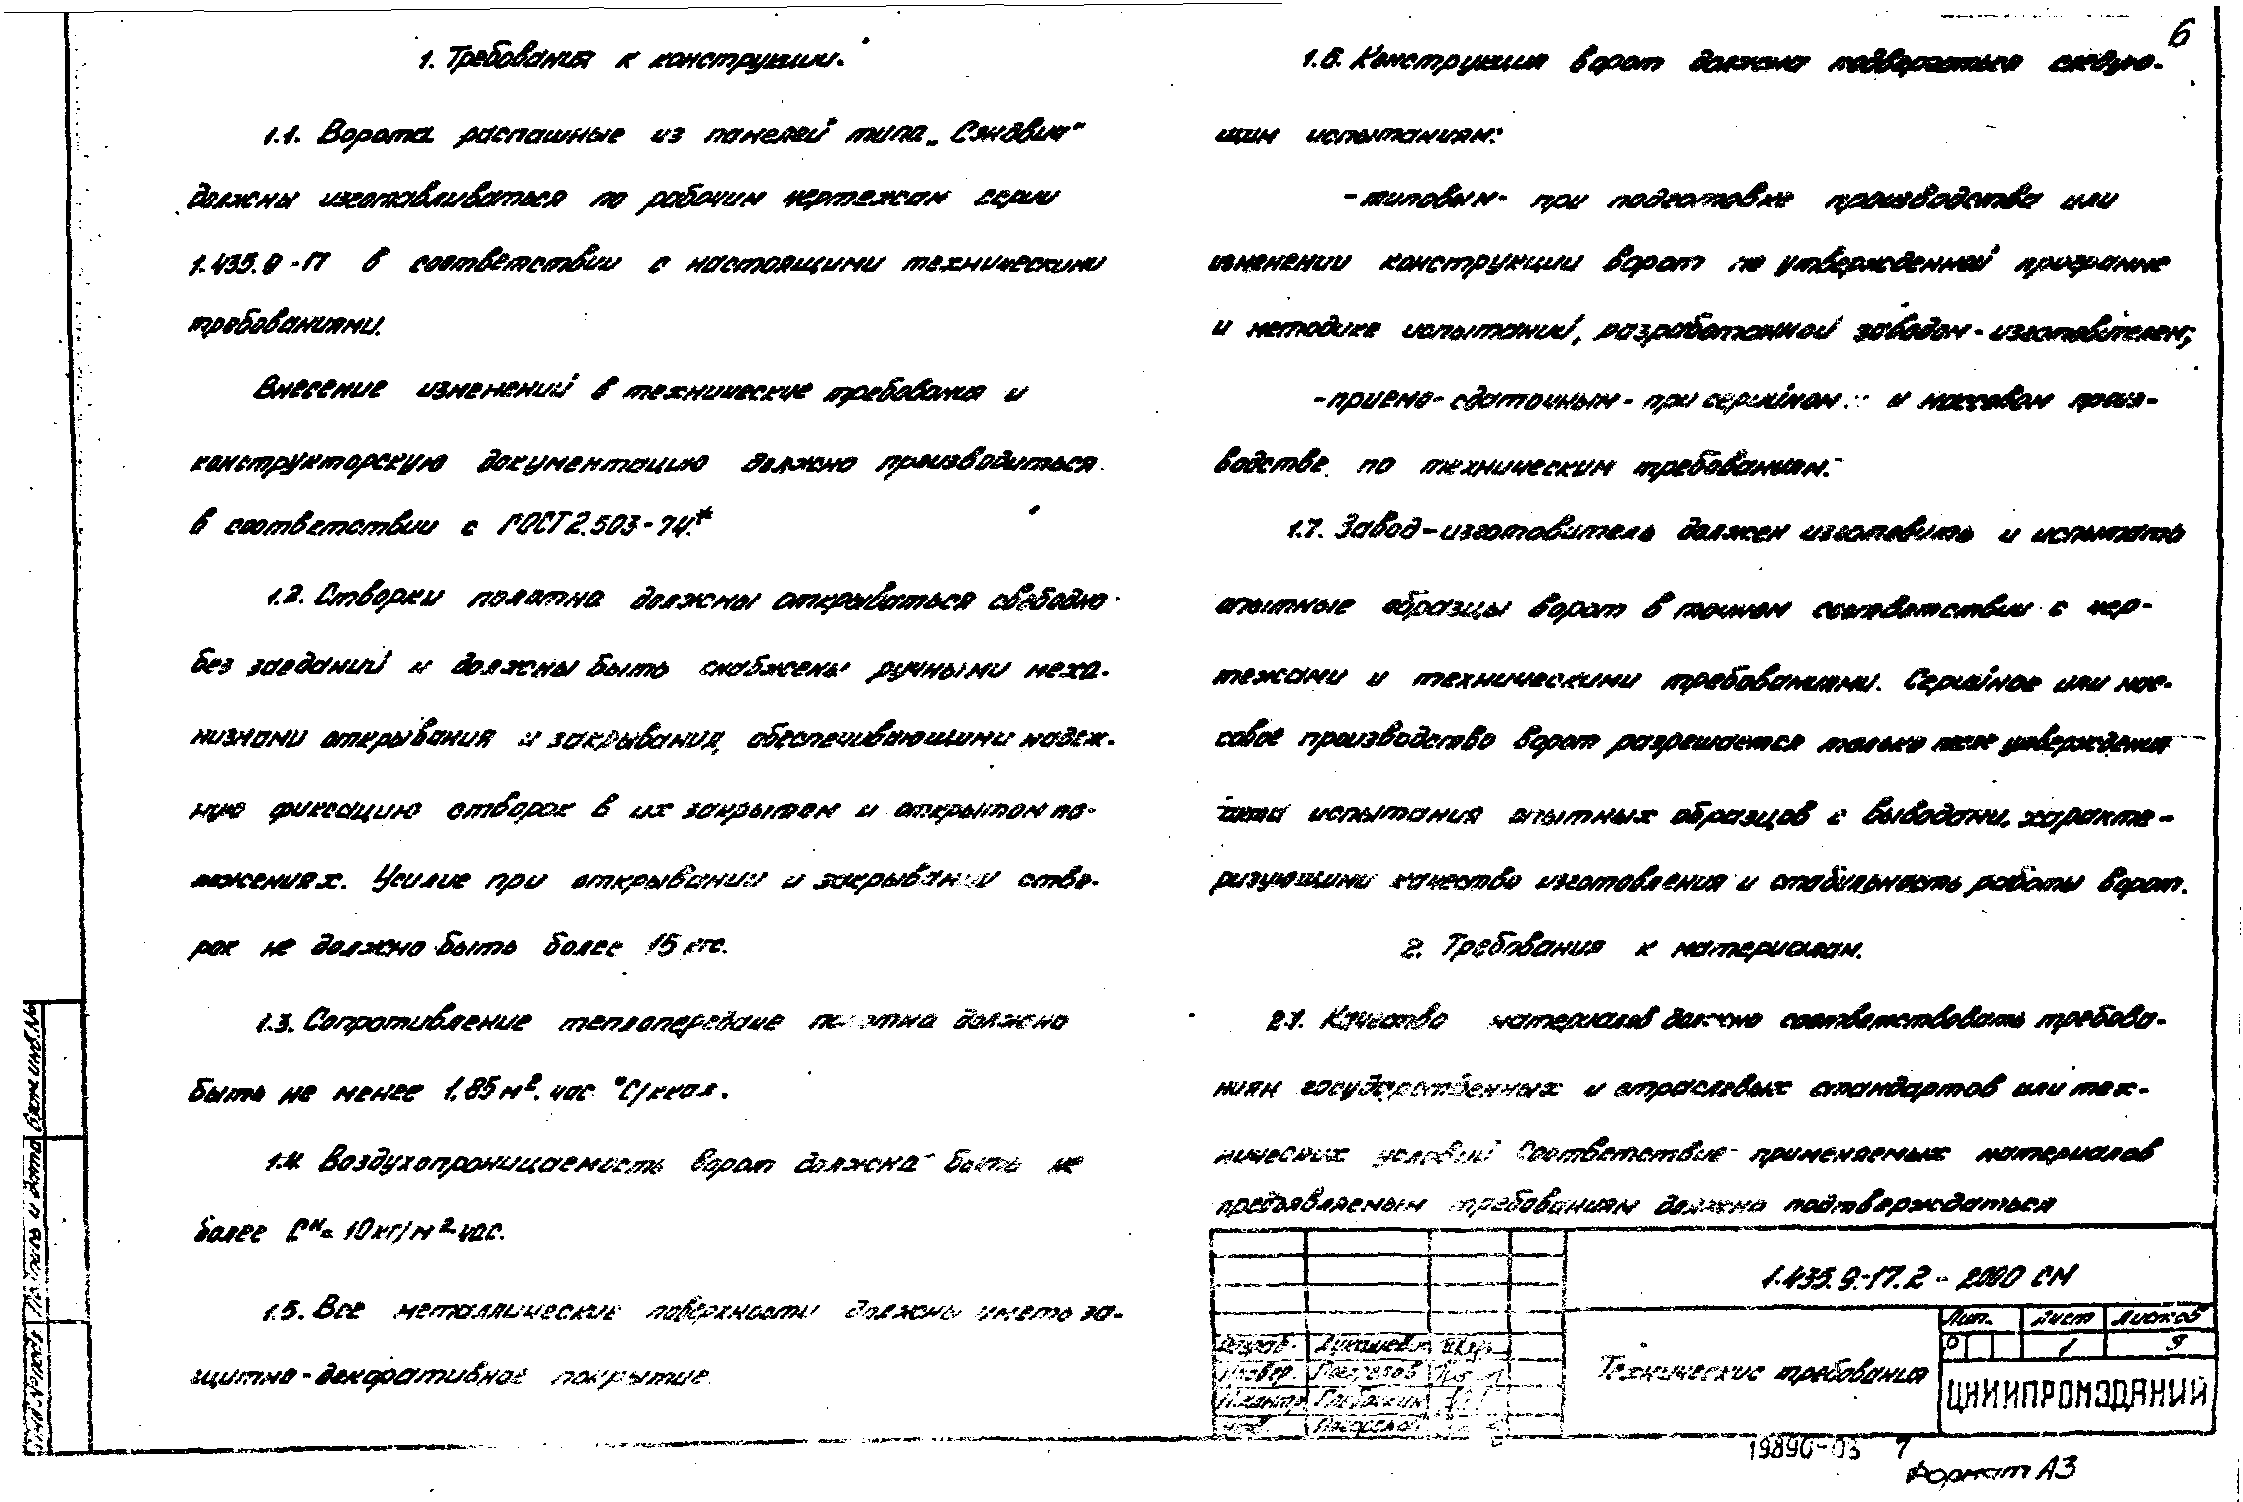 6
1. Требования к конструкции.
1.1. Ворота распашные из панелей типа „Сэндвич"
должны изготавливаться по рабочим чертежам серии
1.435.9-17 в соответствии с настоящими техническими
требованиями.
Внесение изменений в технические требования и
конструкторскую документацию должно производиться
в соответствии с ГОСТ 2.503-74*
1.2. Створки полотна должны открываться свободно
без заеданий и должны быть снабжены ручными меха-
низмами открывания и закрывания, обеспечивающими надеж-
ную фиксацию створок в их закрытом и открытом по-
ложениях. Усилие при открывании и закрывании ство-
рок не должно быть более 15 кгс.
1.3. Сопротивление теплопередаче полотна должно
быть не менее 1.85 м². час °С/ккал.
1.4. Воздухопроницаемость ворот должна быть не
более Gн= 10 кг/м² час.
1.5. Все металлические поверхности должны иметь за-
щитно-декоративное покрытие
1.6. Конструкция ворот должна подвергаться следую-
щим испытаниям:
-типовым- при подготовке производства или
изменении конструкции ворот по утвержденной программе
и методике испытаний, разработанной заводом-изготовителем;
-приемо-сдаточным- при серийном и массовом произ-
водстве по техническим требованиям.
1.7. Завод-изготовитель должен изготовить и испытать
опытные образцы ворот в точном соответствии с чер-
тежами и техническими требованиями. Серийное или мас-
совое производство ворот разрешается только после утверждения
акта испытания опытных образцов с выводами, характе-
ризующими качество изготовления и стабильность работы ворот.
2. Требования к материалам.
2.1. Качество материалов должно соответствовать требова-
ниям государственных и отраслевых стандартов или тех-
нических условий Соответствие применяемых материалов
предъявляемым требованиям должно подтверждаться
1.435.9-17.2 - 2000 СМ
Технические требования
Лит. Лист Листов
Р 1 9
ЦНИИПРОМЗДАНИЙ
Разраб.
Провер.
Н.контр
19890-03 7
Формат А3
Взам инв №
Подп и дата